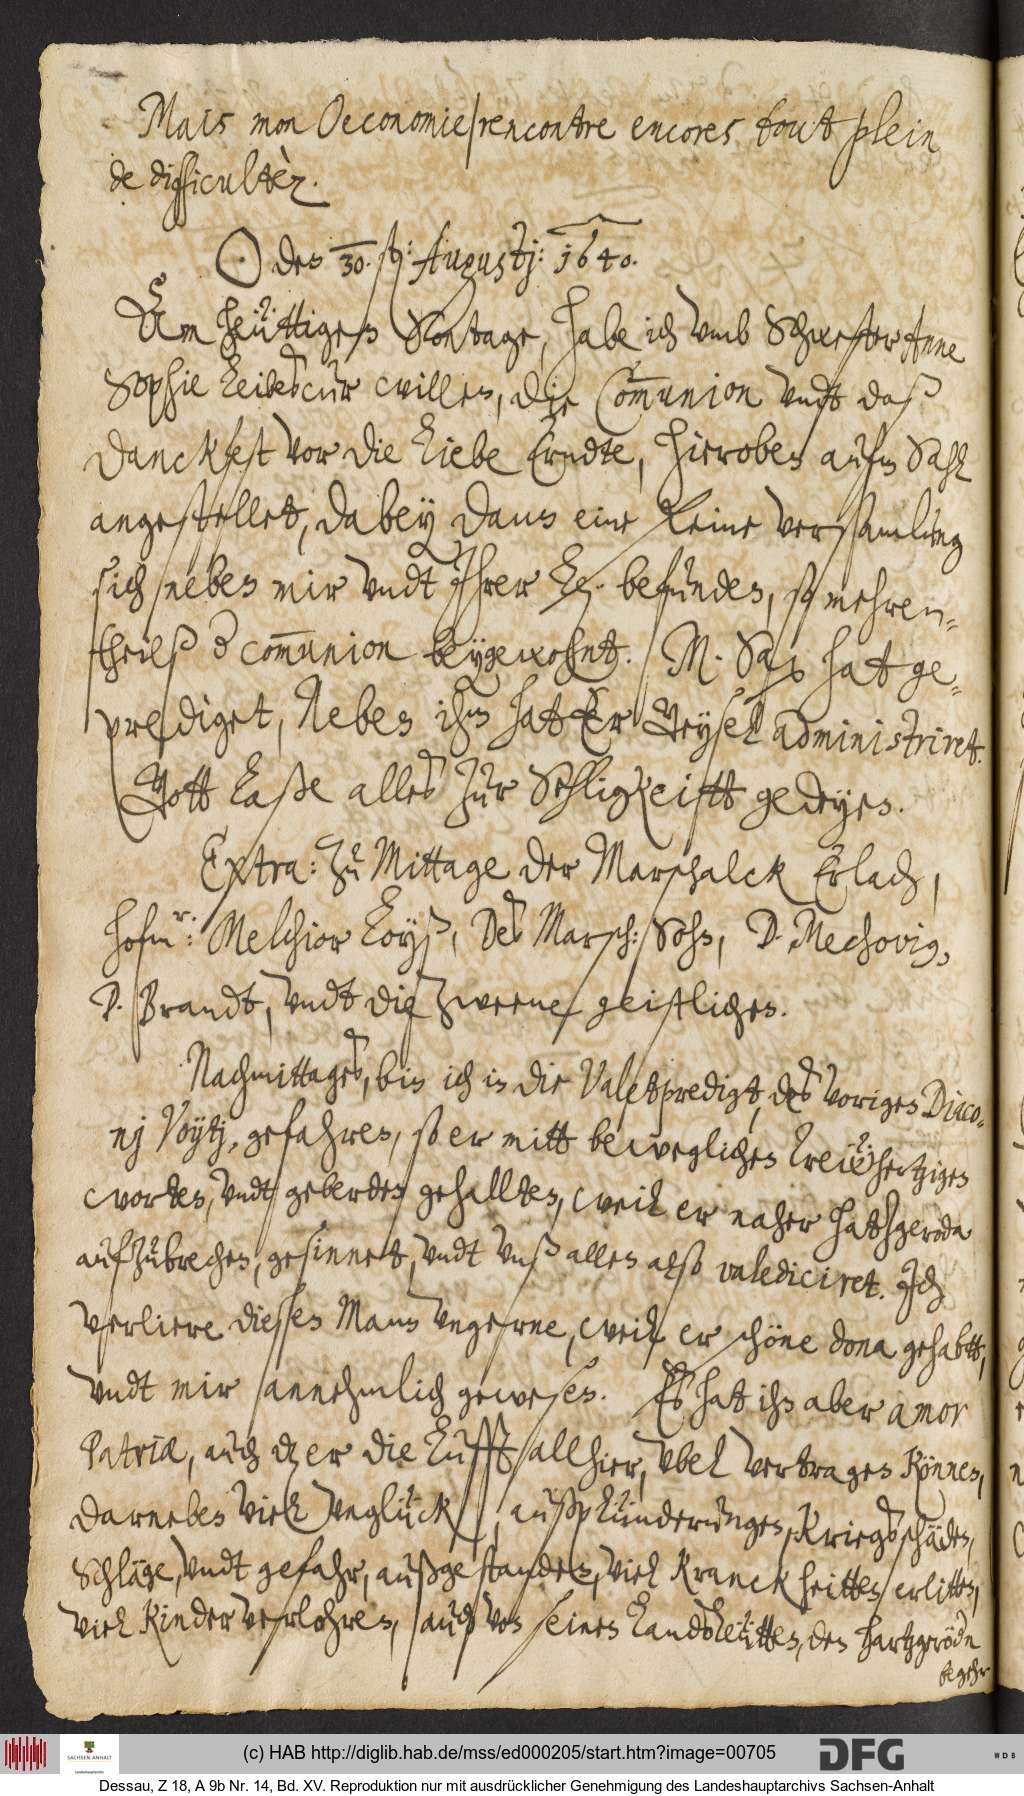 Mais mon Oeconomie rencontre encores tout plein
de difficultèz.
☉ den 30. st: Augustj: 1640.
Am heüttigen Sontage, habe ich vmb Schwester Anne
Sophie Leibescur willen, die Communion vndt daß
Danckfest vor die liebe Erndte, hieroben aufm Sahl
angestellet, dabey dann eine kleine versamlung
sich neben mir vndt Ihrer L. befunden, so mehren-
theilß d communion beygewohnt. M. Sax hat ge-
prediget, Neben ihm hat Er Geysel administriret.
Gott laße alles zur Sehligkeitt gedeyen.
Extra: zu Mittage der Marschalck Erlach,
hofmr: Melchior Loyß, des Marsch: Sohn, D. Mechovig,
D. Brandt, vndt die zweene geistlichen.
Nachmittages, bin ich in die Valetpredigt, des vorigen Diaco-
nj Voytj, gefahren, so er mitt beweglichen trewhertzigen
worten, vndt geberden gehallten, weil er naher hatzgeroda
aufzubrechen, gesinnet, vndt vnß allen also valediciret. Ich
verliere diesen Mann vngerne, weil er schöne dona gehabtt,
vndt mir annehmlich gewesen. Es hat ihn aber amor
Patriæ, auch dz er die Lufft allhier, vbel vertragen können,
darneben viel vnglück, außplünderungen, Kriegsschäden,
Schläge, vndt gefahr, außgestanden, viel Kranckheitten erlitten,
viel Kinder verlohren, auch von seinen Landsleütten, den hartzgerödn
begehr
(c) HAB http://diglib.hab.de/mss/ed000205/start.htm?image=00705
SACHSEN-ANHALT
DFG
WDB
Dessau, Z 18, A 9b Nr. 14, Bd. XV. Reproduktion nur mit ausdrücklicher Genehmigung des Landeshauptarchivs Sachsen-Anhalt